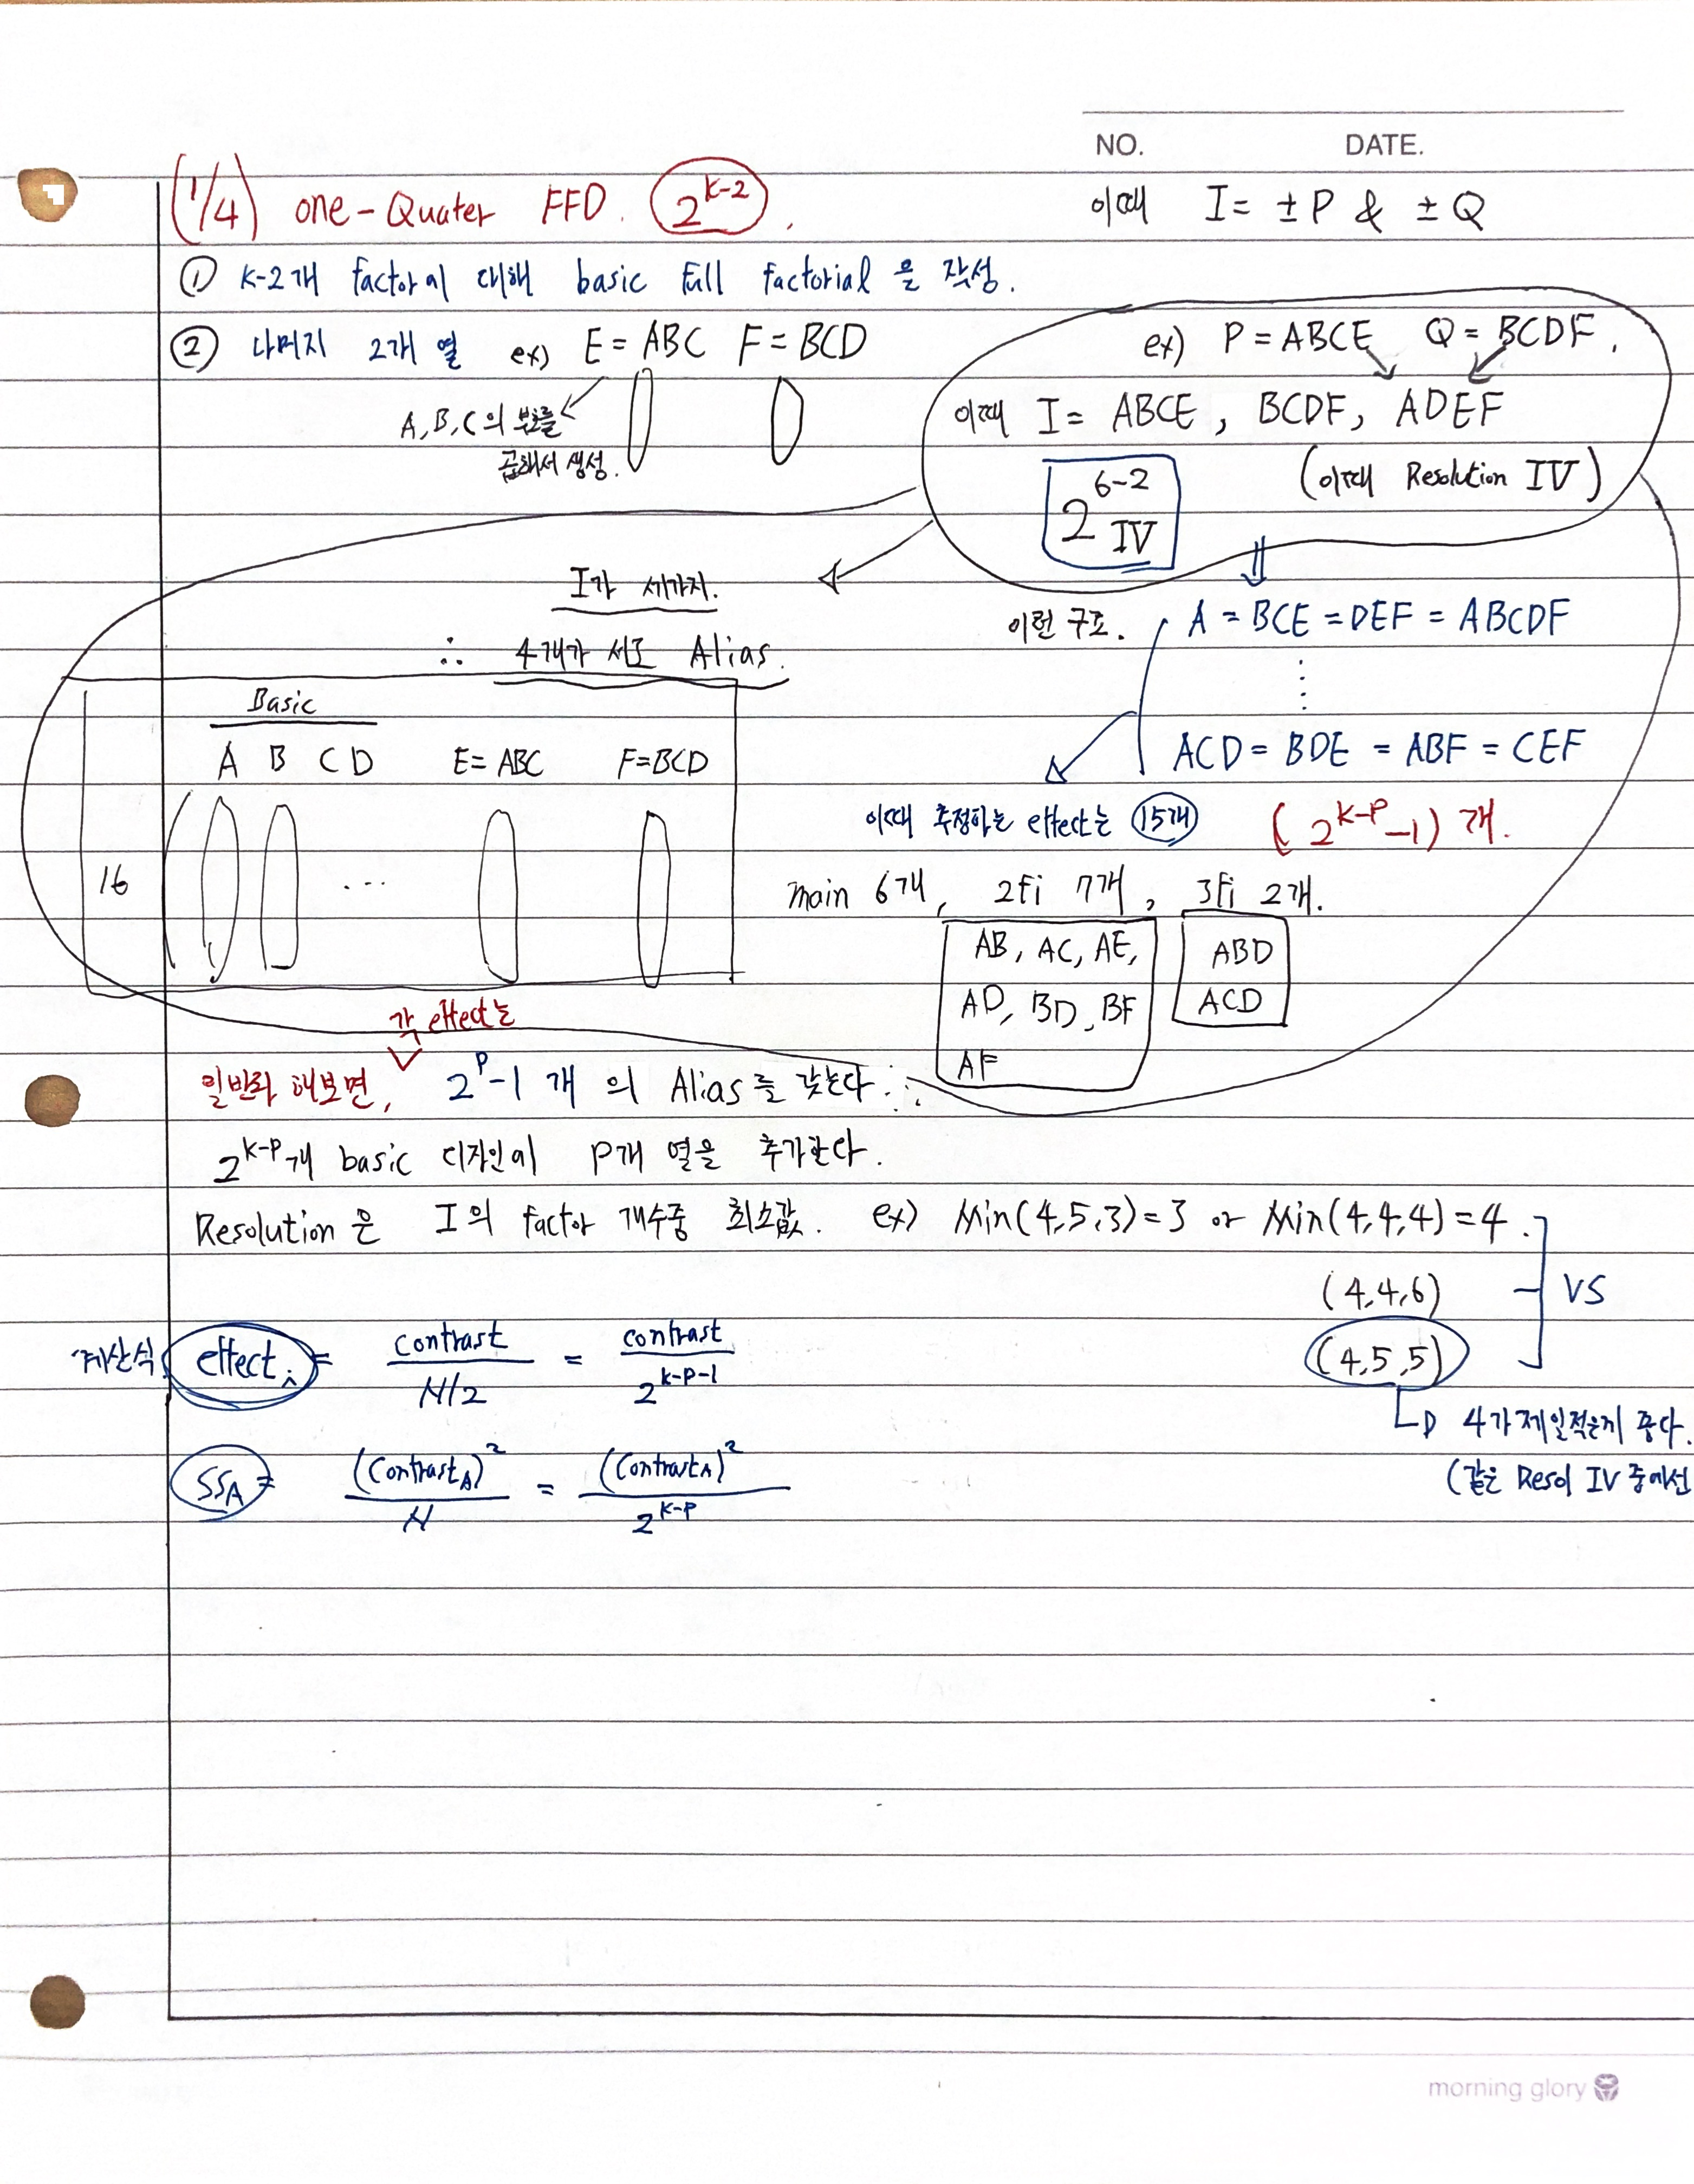 NO. DATE.
(1/4) one-Quater FFD. 2^{K-2}.
이때 I = ±P & ±Q
① K-2개 factor에 대해 basic full factorial을 작성.
② 나머지 2개 열 ex) E = ABC F = BCD
A, B, C의 부호를
곱해서 생성.
ex) P = ABCE Q = BCDF.
이때 I = ABCE, BCDF, ADEF
2^{6-2}_{IV} (이때 Resolution IV)
I가 세가지.
∴ 4개가 서로 Alias.
이런 구조. A = BCE = DEF = ABCDF
⋮
ACD = BDE = ABF = CEF
Basic
A B C D E = ABC F = BCD
16 ...
이때 추정하는 effect는 15개 (2^{k-p}-1)개.
main 6개, 2fi 7개, 3fi 2개.
AB, AC, AE,
AD, BD, BF
AF
ABD
ACD
각 effect는
일반화 해보면, 2^p-1 개의 Alias를 갖는다.
2^{k-p}개 basic 디자인에 P개 열을 추가한다.
Resolution은 I의 factor 개수중 최소값. ex) Min(4,5,3)=3 or Min(4,4,4)=4.
(4,4,6) VS
(4,5,5)
4가 제일적은게 좋다.
(같은 Resol IV 중에선
계산식 effect_i = contrast / N/2 = contrast / 2^{k-p-1}
SS_A = (Contrast_A)^2 / N = (Contrast_A)^2 / 2^{k-p}
morning glory